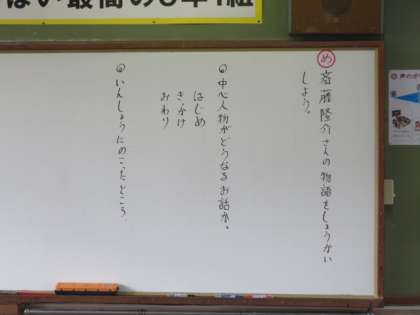 ぱい最高の3年1組
め 斎藤隆介さんの物語をしょうかい
しよう。
◎中心人物がどうなるお話か。
はじめ
きっかけ
おわり
◎いんしょうにのこったところ